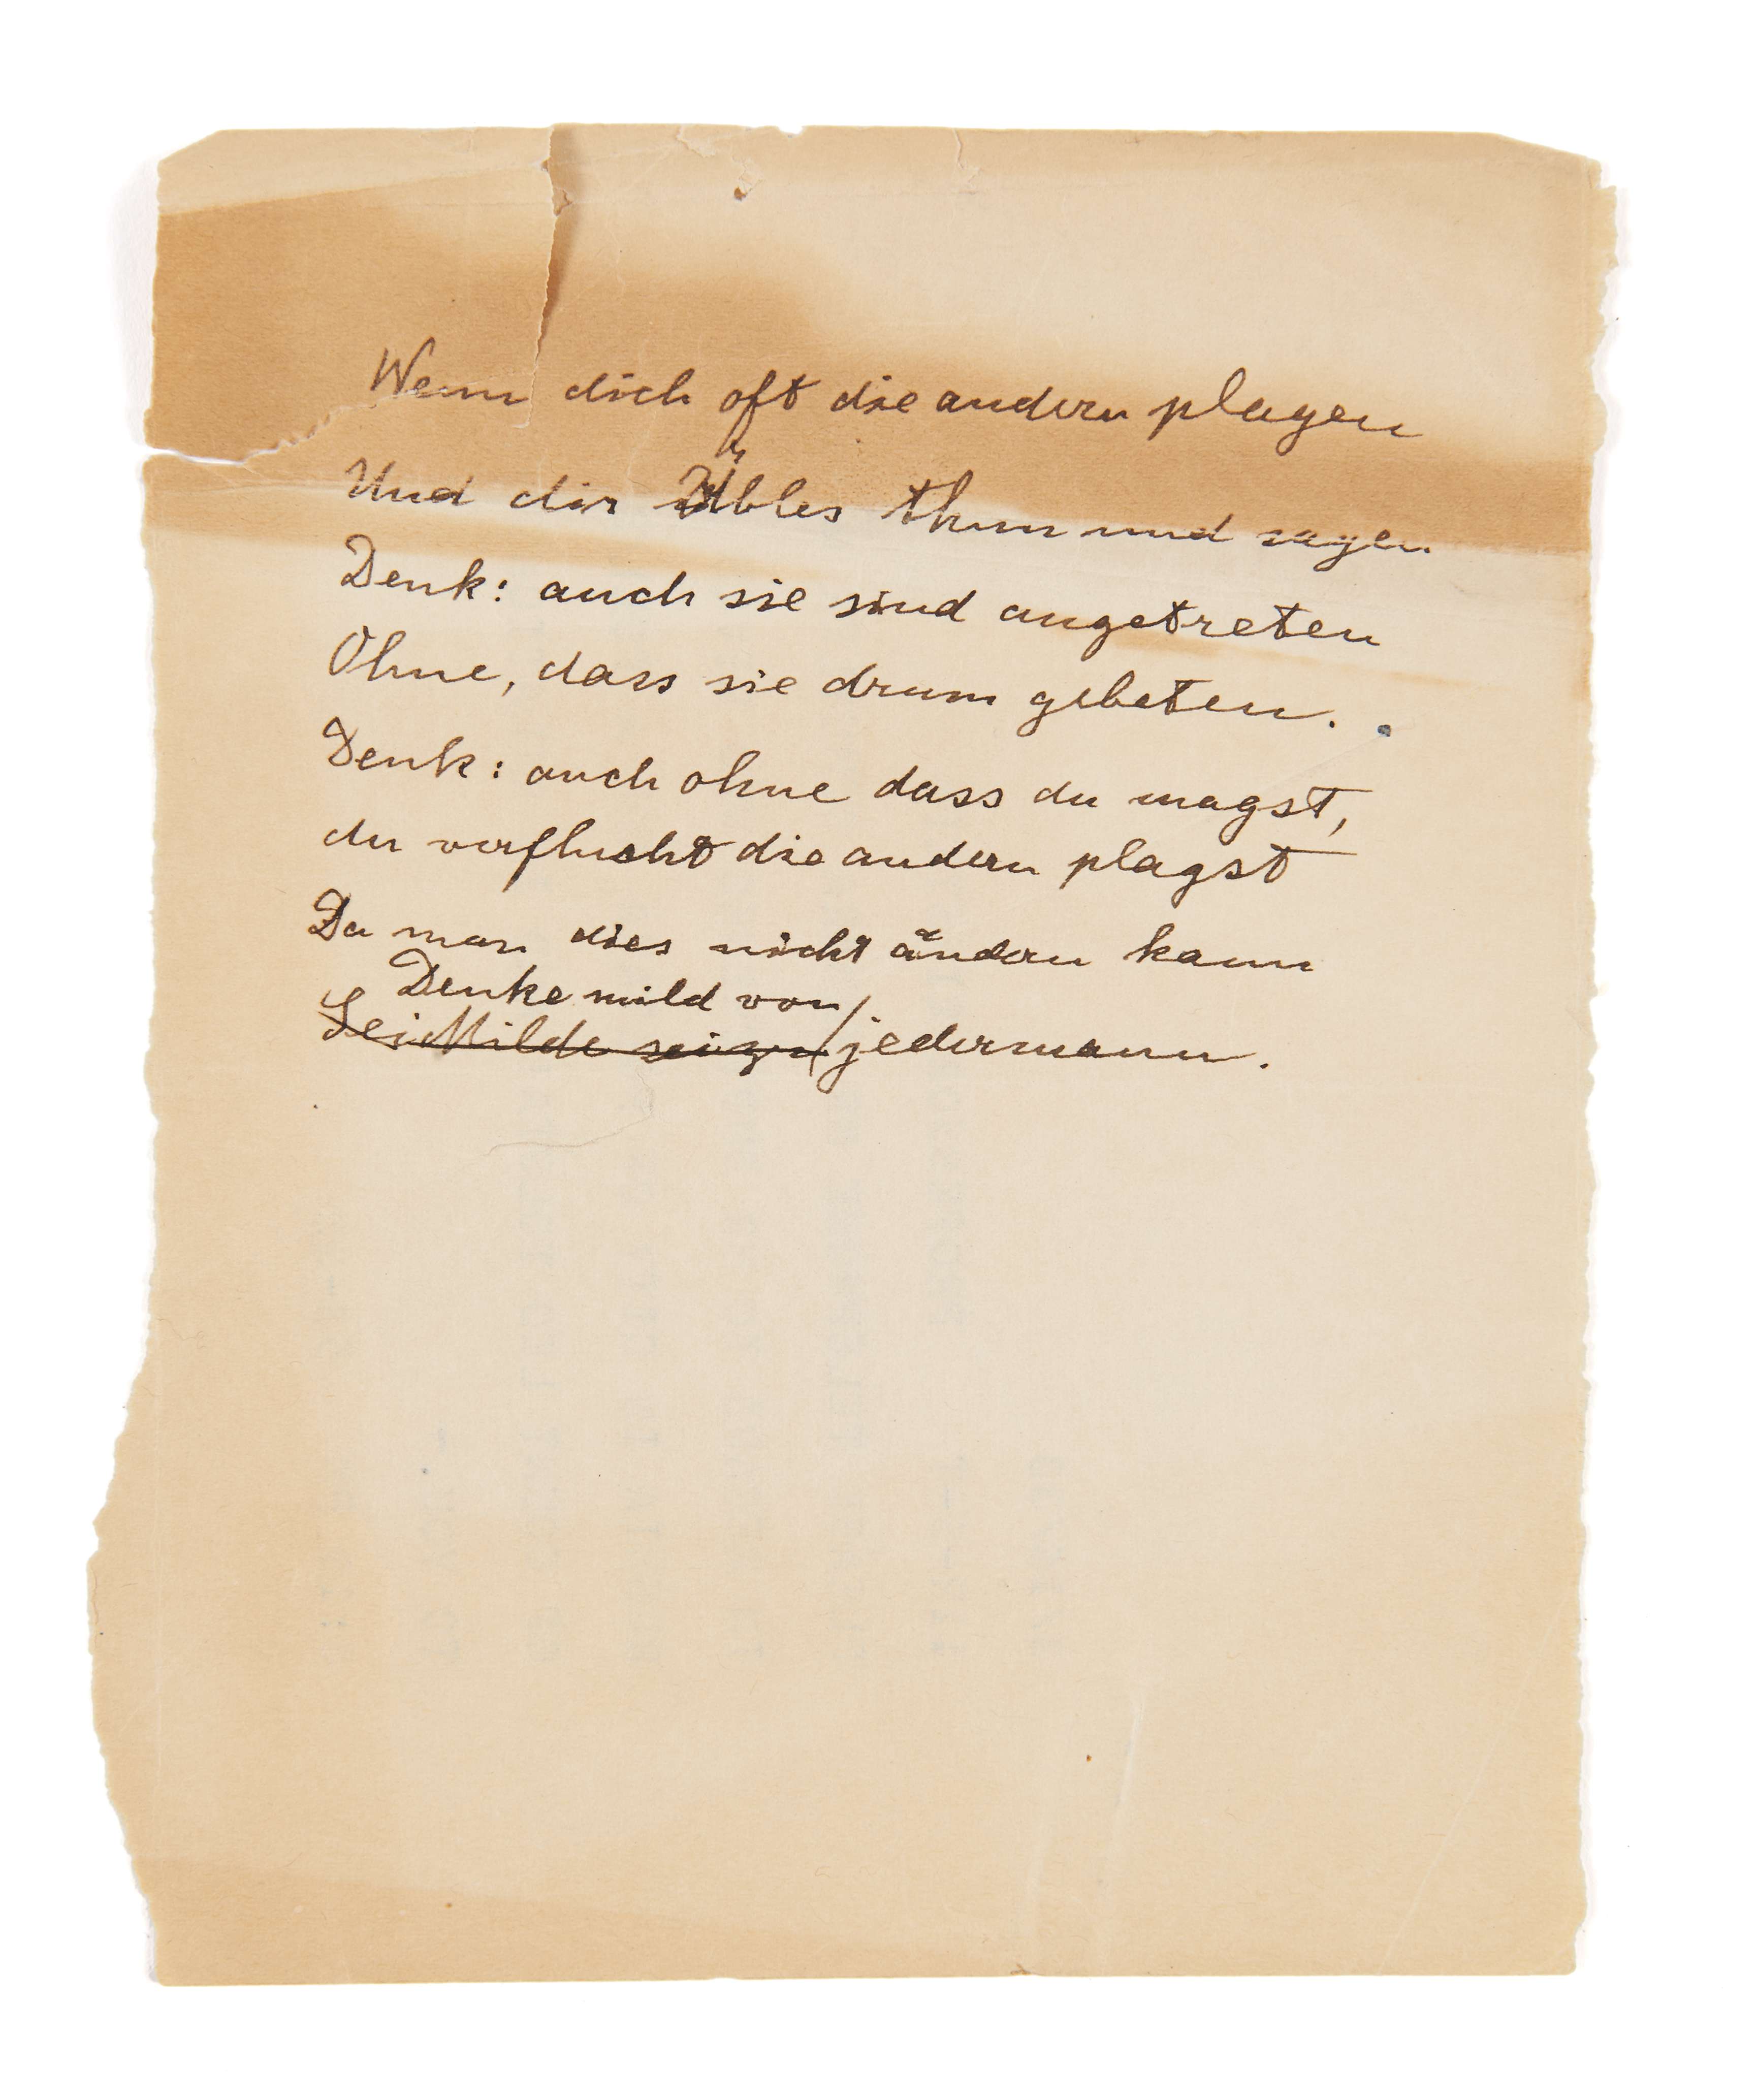 Wenn dich oft die andern plagen
Und dir Übles thun und sagen
Denk: auch sie sind angetreten
Ohne, dass sie drum gebeten.
Denk: auch ohne dass du magst,
du verflucht die andern plagst
Da man dies nicht ändern kann
Denke mild von
Sei Milde zu jedermann.